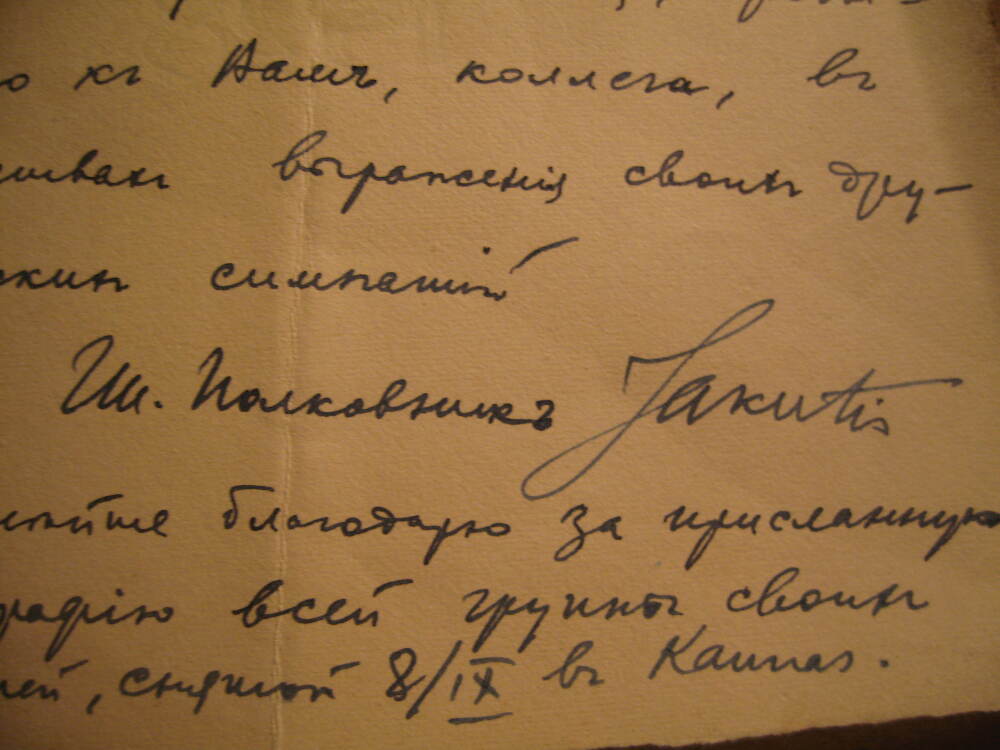 къ Вамъ, коллега, въ
выраженія своихъ дру-
симпатій
Шт. Полковникъ Jakutis
благодарю за присланную
графію всей группы своихъ
, снятой 8/IX въ Kaunas.